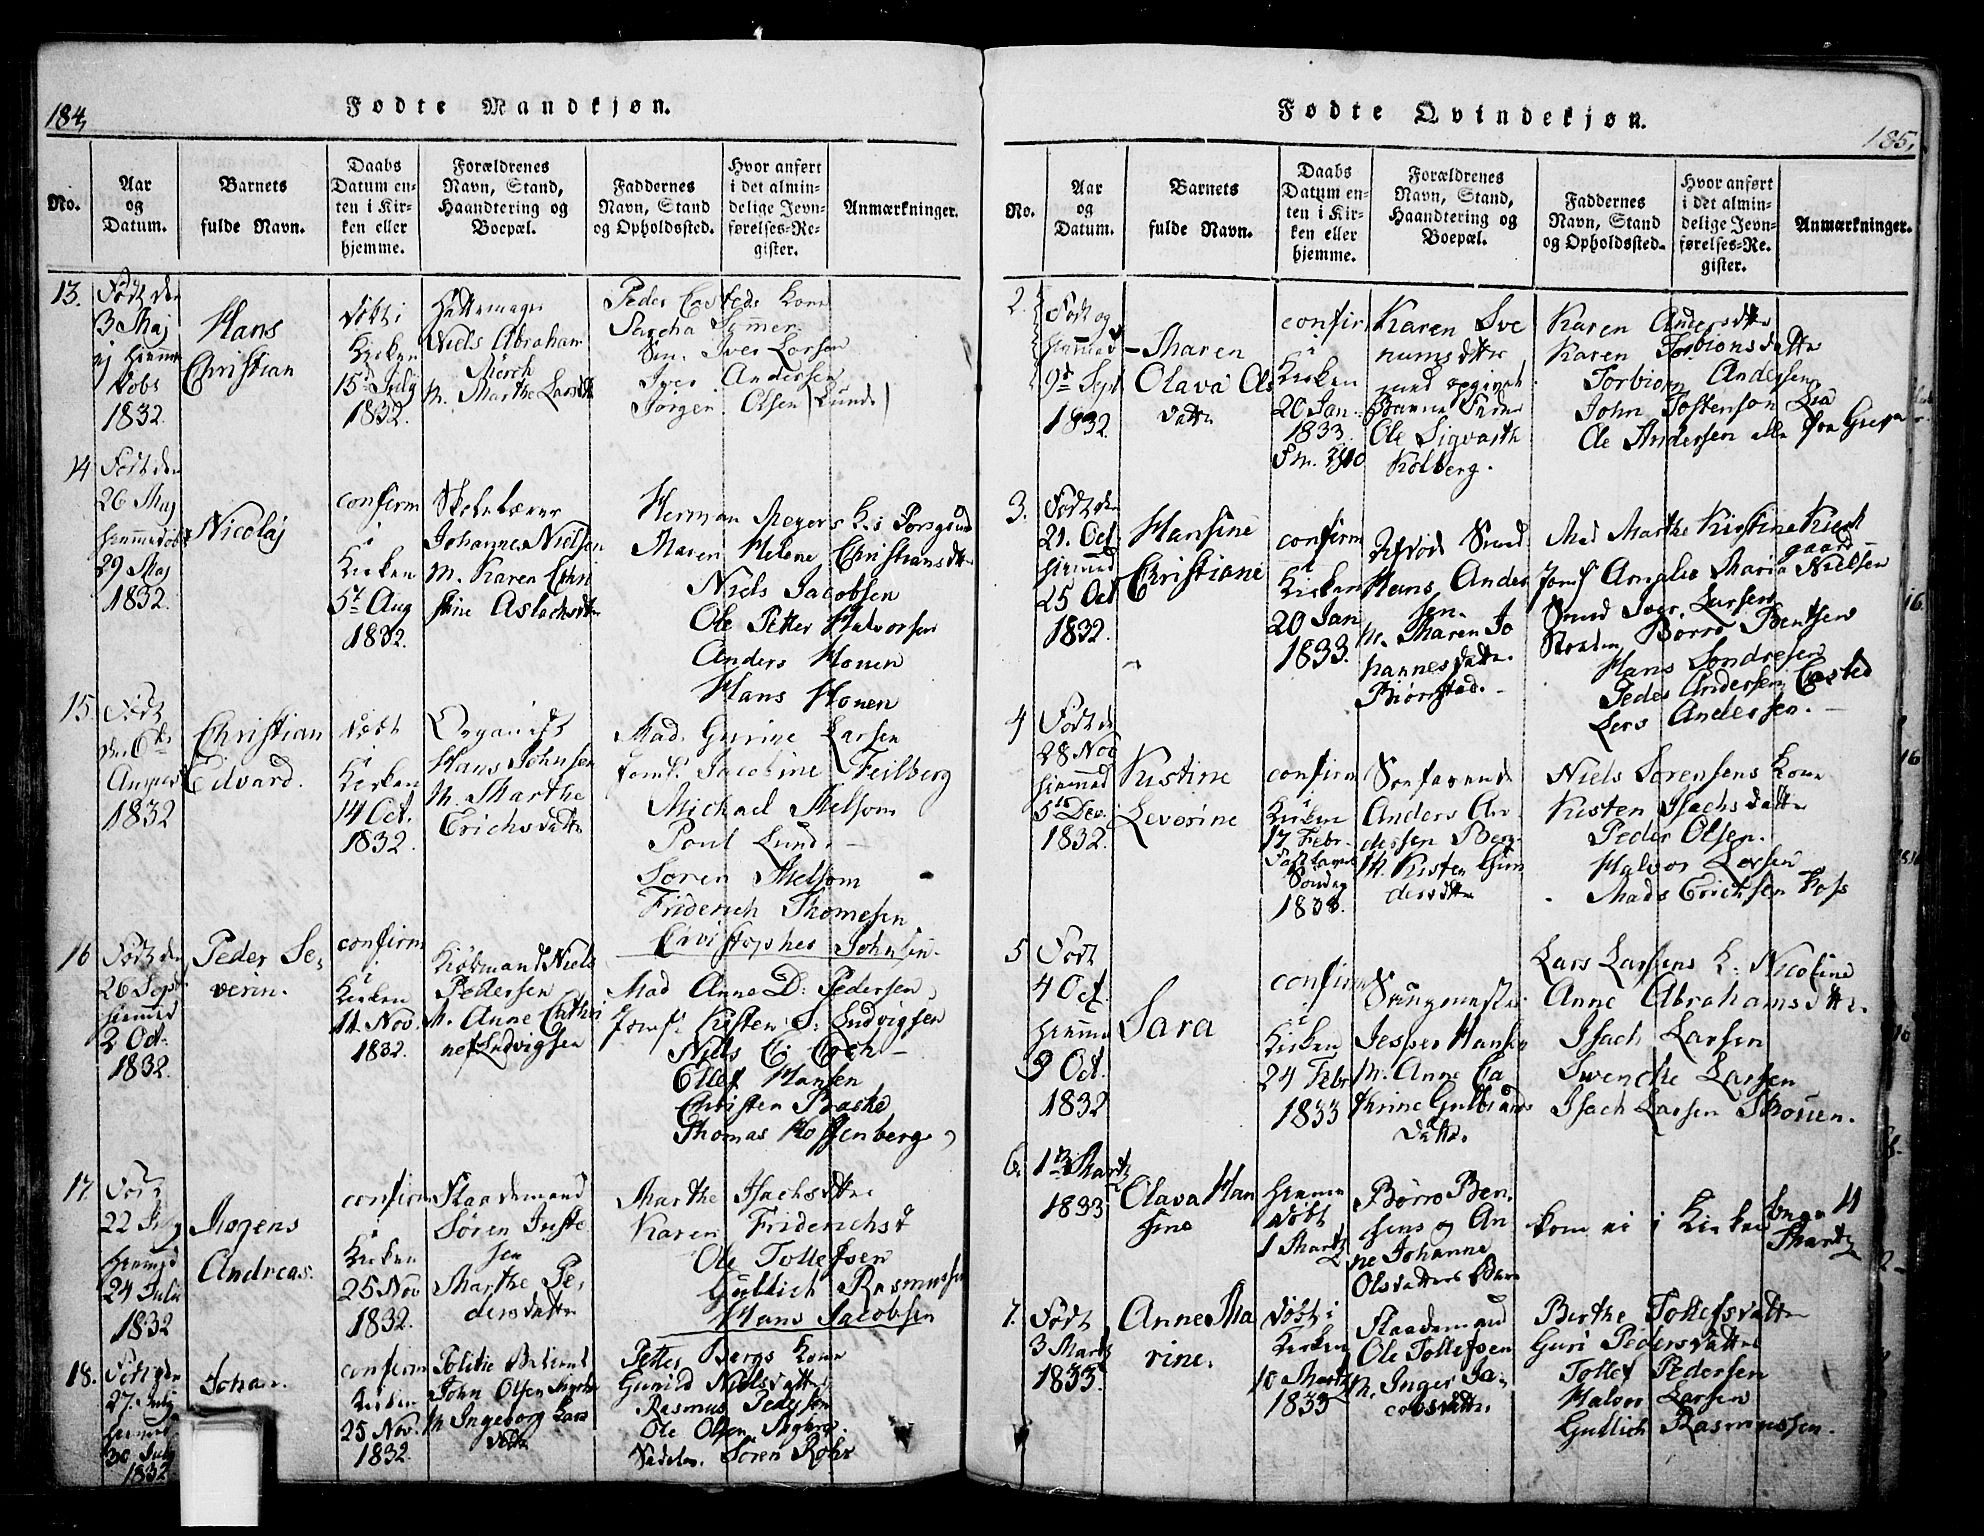 184,
Fødte Mandkjøn.
No.
Aar
og
Datum.
Barnets
fulde Navn.
Daabs
Datum en-
ten i Kir-
ken eller
hjemme.
Forældrenes
Navn, Stand,
Haandtering og
Boepæl.
Faddernes
Navn, Stand
og Opholdssted.
Hvor anført
i det almin-
delige Jevn-
førelses-Re-
gister.
Anmærkninger.
13.
Født den
3 Maj
1832
Hans
Christian
døbt i
Kirken
15d July
1832.
Hattemager
Niels Abraham
Mørch
M. Marthe Larsdtr
Peder Costeds Kone
Iver Larsen
Iver Andersen
Jørgen Olsen Lunde
14
Født den
26 Maj
hjemmedøbt
29 Maj
1832.
Nicolaj
confirm
i
Kirken
5t Aug
1832.
Skolelærer
Johannes Nielsen
M. Karen Cathri
stine Aslachsdtr
Herman Meyers K. i Porsgrund
Maren Helene Christiansdtr
Niels Jacobsen
Ole Petter Halvorsen
Anders Honen
Hans Honen
15.
Født
den 6te
August
1832
Christian
Edvard.
døbt
i
Kirken
14 Oct.
1832.
Organist
Hans Johnsen
M. Marthe
Erichsdatter
Mad. Gurine Larsen
Jomf. Jacobine Feilberg
Michael Melsom
Poul Lund
Søren Melsom
Friderich Thomesen
Christopher Johnsen.
16
Født den
26 Sept
hjemmed
2 Oct.
1832.
Peder Se,
verin.
confirm
i
Kirken
11. Nov.
1832.
Kiøbmand Niels
Pedersen
M. Anne Cathri
ne Ludvigsen
Mad Anne D. Pedersen,
Jomf. Kirsten S. Ludvigsen
Niels C. Coch
Ellef Hansen
Christen Braske
Thomas Hoffenberg
17.
Født
22 July
hjemmed
24 Juli
1832
Mogens
Andreas.
confirm
i
Kirken
25 Nov
1832.
Flaademand
Søren Juste
sen
Marthe Pe,
dersdatter
Marthe Isachsdtr
Karen Friderichsd
Ole Tollefsen
Gullich Rasmussen
Hans Jacobsen
18.
Født den
27. July
hjemmed
30 July
1832
Johan.
confirm
Kirken
25 Nov.
1832.
Politie Betient
John Olsen
M. Ingeborg Lars
datter
Petter Bergs Kone
Gunild Nielsdatter
Rasmus Pedersen
Ole Olsen
Søren Rohr
185,
Fødte Qvindekjøn.
No.
Aar
og
Datum.
Barnets
fulde Navn.
Daabs
Datum en-
ten i Kir-
ken eller
hjemme.
Forældrenes
Navn, Stand,
Haandtering og
Boepæl.
Faddernes
Navn, Stand
og Opholdssted.
Hvor anført
i det almin-
delige Jevn-
førelses-Re-
gister.
Anmærkninger.
2.
Født og
hjemmed
9d Sept
1832.
Maren
Olava Ols
datter
confir
i
Kirken
20 Jan.
1833.
Karen Sve
numsdatter
med opgivet
Barne Fader
Ole Sigvarth
Kolberg.
Karen Andersdtr
Karen Torbionsdatter
Torbiorn Andersen
John Tostenson Lia
Ole Andersen alle fra
3.
Født den
21. Oct
hjemmed
25 Oct
1832.
Hansine
Christiane
confirm
i
Kirken
20 Jan
1833.
Hans Ander
sen.
M. Maren Jo
hannesdatter
Biørnstad.
Mad Marthe Kirstine Kierk
gaard
Jomf Amalie Maria Nielsen
Larsen
Børre Bentsen
Hans Sondresen
Peder Andersen Costed
Lars Andersen.
4
Født d
28 Nov
hjemmed
5te Dec.
1832.
Kirstine
Severine
confirm
i
Kirken
17 Febr.
Fastelavns
Søndag
1833.
Søefarende
Anders An
dersen Berg
M. Kirsten Gun
dersdtr
Niels Sørensens Kone
Kirsten Isachsdatter
Peder Olsen.
Halvor Larsen
Mads Erichsen Foss
5
Født
4 Oct.
hjemme
9 Oct.
1832
Sara
confirm
i
Kirken
24 Febr
1833
Jesper Hansen
M. Anne Ca
thrine Gulbrands
datter.
Lars Larsens K. Nicoline
Anne Abrahamsdtr.
Isach Larsen
Swenche Larsen
Isach Larsen Skouen.
6.
1te Martz
1833
Olava Han
sine
hjemme
døbt
1 Martz
Børre Ben,
sens og An
ne Johanne
Olsdatters Barn
kom ei i Kirken
4
Martz
7.
Født
3 Martz
1833.
Anne Ma
rine.
døbt i
Kirken
10 Martz
1833
Flaademand
Ole Tollefsen
M. Inger Ja,
cobsdatter.
Berthe Tollefsdatter
Guri Pedersdatter
Tollef Pedersen
Halvor Larsen
Gullich Rasmussen.